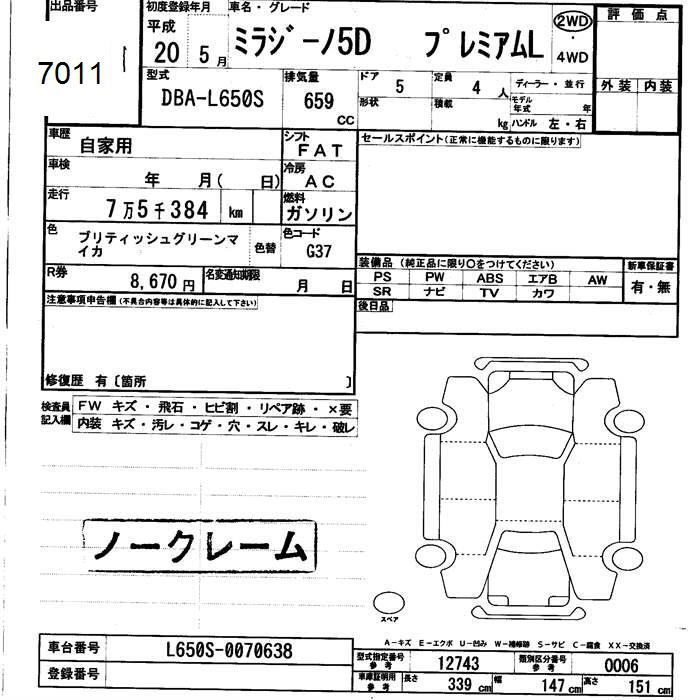 出品番号 初度登録年月 車名・グレード
7011 平成 20 5月 ミラジーノ5D プレミアムL 2WD・4WD 評価点
型式 排気量 ドア 5 定員 4人 ディーラー・並行 外装 内装
DBA-L650S 659 CC 形状 積載 kg モデル年式 年 ハンドル 左・右
車歴 自家用 シフト FAT セールスポイント(正常に機能するものに限ります)
車検 年 月( 日) 冷房 AC
走行 7万5千384 km 燃料 ガソリン
色 ブリティッシュグリーンマイカ 色替 色コード G37
装備品(純正品に限り〇をつけてください) 新車保証書
R券 8,670円 名変通知期限 月 日 PS PW ABS エアB AW 有・無
SR ナビ TV カワ
注意事項申告欄(不具合内容等は具体的に記入して下さい) 後日品
修復歴 有〔箇所 〕
検査員記入欄 FW キズ・飛石・ヒビ割・リペア跡・×要
内装 キズ・汚レ・コゲ・穴・スレ・キレ・破レ
ノークレーム
スペア
A-キズ E-エクボ U-凹み W-補修跡 S-サビ C-腐食 XX-交換済
車台番号 L650S-0070638 型式指定番号 参考 12743 類別区分番号 参考 0006
登録番号 車庫証明用 参考 長さ 339cm 幅 147cm 高さ 151cm